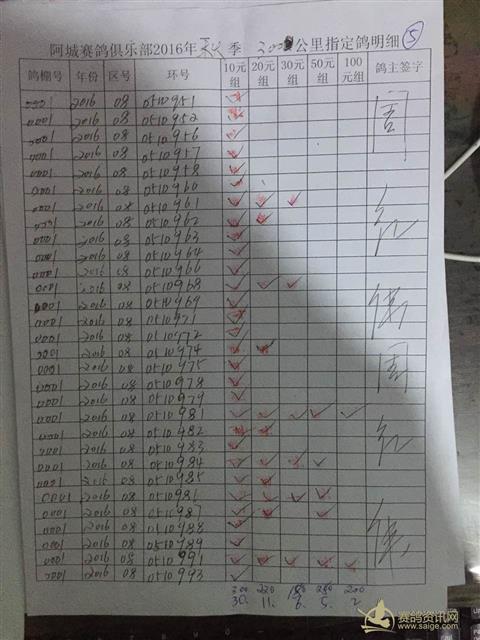 阿城赛鸽俱乐部2016年秋季 300公里指定鸽明细 ⑤
鸽棚号 年份 区号 环号 10元组 20元组 30元组 50元组 100元组 鸽主签字
0001 2016 08 0510951 ✓
0001 2016 08 0510952 ✓
0001 2016 08 0510956 ✓
0001 2016 08 0510957 ✓
0001 2016 08 0510958 ✓
0001 2016 08 0510960 ✓
0001 2016 08 0510961 ✓ ✓ ✓
0001 2016 08 0510962 ✓ ✓
0001 2016 08 0510963 ✓
0001 2016 08 0510964 ✓
0001 2016 08 0510966 ✓
0001 2016 08 0510968 ✓ ✓ ✓
0001 2016 08 0510969 ✓
0001 2016 08 0510971 ✓
0001 2016 08 0510972 ✓
0001 2016 08 0510974 ✓ ✓
0001 2016 08 0510975 ✓
0001 2016 08 0510978 ✓
0001 2016 08 0510979 ✓
0001 2016 08 0510981 ✓ ✓ ✓ ✓ ✓
0001 2016 08 0510982 ✓ ✓
0001 2016 08 0510983 ✓
0001 2016 08 0510984 ✓ ✓ ✓ ✓
0001 2016 08 0510985 ✓ ✓
0001 2016 08 051098 ✓ ✓ ✓ ✓
0001 2016 08 0510987 ✓ ✓ ✓
0001 2016 08 0510988 ✓
0001 2016 08 0510989 ✓
0001 2016 08 0510991 ✓ ✓ ✓ ✓ ✓
0001 2016 08 0510993 ✓
周
红
伟
周
红
伟
300 220 180 250 200
30. 11. 6. 5. 2
赛鸽资讯网
www.saige.com